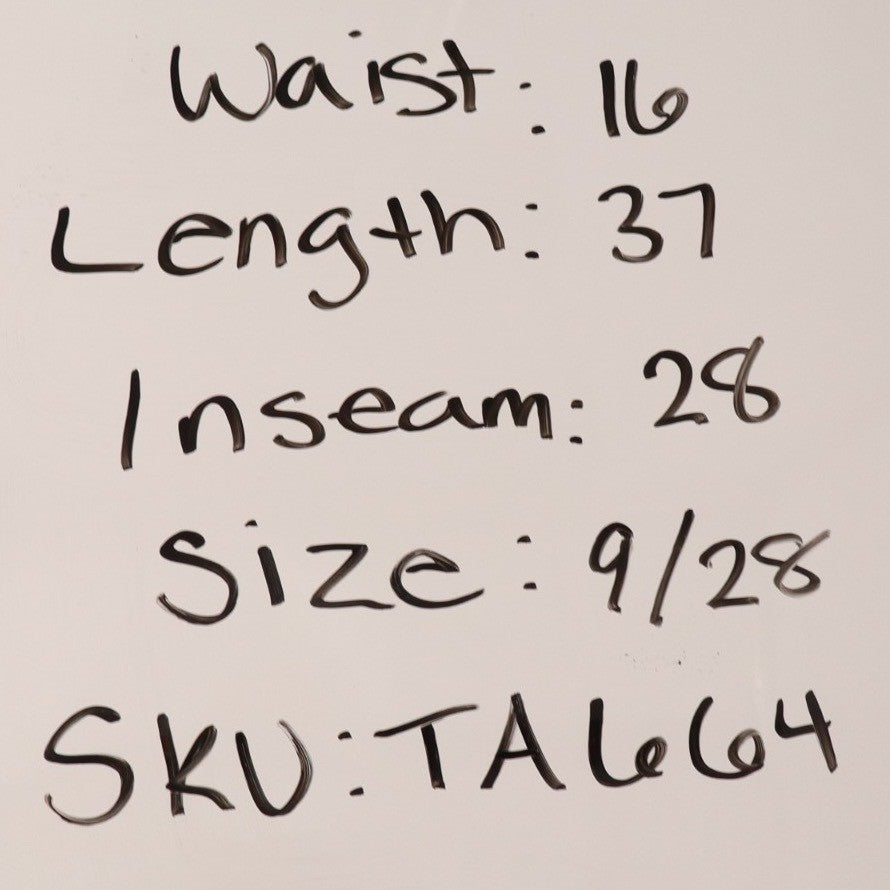 Waist: 16
Length: 37
Inseam: 28
Size: 9/28
SKU: TA664